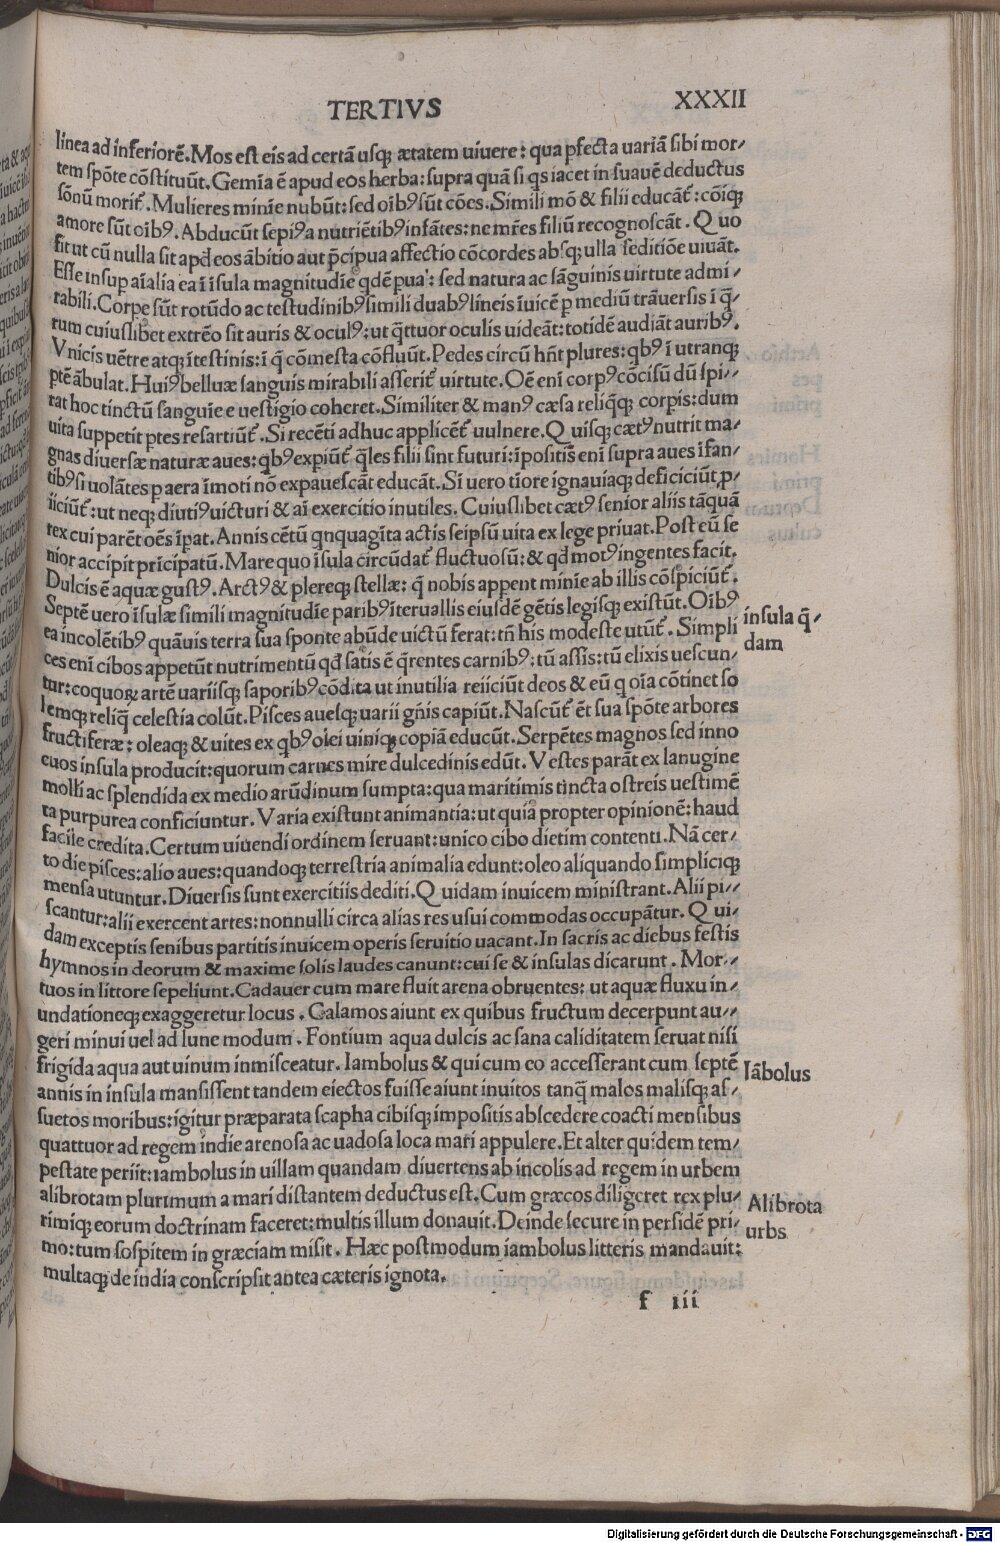 TERTIVS
XXXII
linea ad inferiorē. Mos est eis ad certā usq; ætatem uiuere: qua pfecta uariā sibi mor-
tem spōte cōstituūt. Gemīa ē apud eos herba: supra quā si qs iacet in suauē deductus
sōnū morit̄. Mulieres minīe nubūt: sed oibꝰ sūt cōes. Simili mō & filii educāt̄: cōiq;
amore sūt oibꝰ. Abducūt sepiꝰ a nutriētibꝰ infātes: ne mr̄es filiū recognoscāt. Quo
fit ut cū nulla sit apd eos ābitio aut p̄cipua affectio cōcordes absq; ulla seditiōe uiuāt.
Esse insup aīalia ea ī īsula magnitudīe qdē pua: sed natura ac sāguinis uirtute admi-
rabili. Corpe sūt rotūdo ac testudinibꝰ simili duabꝰ līneis īuicē p mediū trāuersis ī q̄-
rum cuiuslibet extrēo sit auris & oculꝰ: ut q̄ttuor oculis uideāt: totidē audiāt auribꝰ.
Vnicis uētre atq; ītestinis: ī q̄ cōmesta cōfluūt. Pedes circū hn̄t plures: qbꝰ ī utranq;
ptē ābulat. Huiꝰ belluæ sanguis mirabili asserit̄ uirtute. Oē enī corpꝰ cōcisū dū spi-
rat hoc tinctū sanguīe e uestigio coheret. Similiter & manꝰ cæsa reliq̄q; corpis: dum
uita suppetit ptes resartiūt̄. Si recēti adhuc applicēt̄ uulnere. Quisq; cætꝰ nutrit ma-
gnas diuersæ naturæ aues: qbꝰ expiūt̄ q̄les filii sint futuri: īpositis enī supra aues īfan-
tibꝰ si uolātes p aera īmoti nō expauescāt educāt. Si uero tiore ignauiaq; deficiciūt, p-
iiciūt̄: ut neq; diutiꝰ uicturi & aī exercitio inutiles. Cuiuslibet cætꝰ senior aliis tāquā
rex cui parēt oēs īpat. Annis cētū qnquagīta actis seipsū uita ex lege priuat. Post eū se
nior accipit pricipatū. Mare quo īsula circūdat̄ fluctuosū: & qd motꝰ ingentes facit.
Dulcis ē aquæ gustꝰ. Arctꝰ & plereq; stellæ: q̄ nobis appent minīe ab illis cōspiciūt̄.
Septē uero īsulæ simili magnitudīe paribꝰ īteruallis eiusdē gētis legisq; existūt. Oibꝰ
ea incolētibꝰ quāuis terra sua sponte abūde uictū ferat: tn̄ his modeste utūt̄. Simpli
ces enī cibos appetūt nutrimentū qd satis ē q̄rentes carnibꝰ: tū assis: tū elixis uescun-
tur: coquoꝝ artē uariisq; saporibꝰ cōdita ut inutilia reiiciūt deos & eū q oīa cōtinet so
lemq; reliq̄ celestia colūt. Pisces auesq; uarii gn̄is capiūt. Nascūt̄ ēt sua spōte arbores
fructiferæ: oleaq; & uites ex qbꝰ olei uiniq; copiā educūt. Serpētes magnos sed inno
cuos insula producit: quorum carnes mire dulcedinis edūt. Vestes parāt ex lanugine
molli ac splendida ex medio arūdinum sumpta: qua maritimis tincta ostreis uestimē
ta purpurea conficiuntur. Varia existunt animantia: ut quia propter opinionē: haud
facile credita. Certum uiuendi ordinem seruant: unico cibo dietim contenti. Nā cer-
to die pisces: alio aues: quandoq; terrestria animalia edunt: oleo aliquando simpliciq;
mensa utuntur. Diuersis sunt exercitiis dediti. Quidam inuicem ministrant. Alii pi-
scantur: alii exercent artes: nonnulli circa alias res usui commodas occupātur. Qui-
dam exceptis senibus partitis inuicem operis seruitio uacant. In sacris ac diebus festis
hymnos in deorum & maxime solis laudes canunt: cui se & insulas dicarunt. Mor-
tuos in littore sepeliunt. Cadauer cum mare fluit arena obruentes: ut aquæ fluxu in-
undationeq; exaggeretur locus. Calamos aiunt ex quibus fructum decerpunt au-
geri minui uel ad lune modum. Fontium aqua dulcis ac sana caliditatem seruat nisi
frigida aqua aut uinum inmisceatur. Iambolus & qui cum eo accesserant cum septē
annis in insula mansissent tandem eiectos fuisse aiunt inuitos tanq̄ malos malisq; as-
suetos moribus: igitur præparata scapha cibisq; impositis abscedere coacti mensibus
quattuor ad regem indie arenosa ac uadosa loca mari appulere. Et alter quidem tem-
pestate periit: iambolus in uillam quandam diuertens ab incolis ad regem in urbem
alibrotam plurimum a mari distantem deductus est. Cum græcos diligeret rex plu-
rimiq; eorum doctrinam faceret: multis illum donauit. Deinde secure in persidē pri-
mo: tum sospitem in græciam misit. Hæc postmodum iambolus litteris mandauit:
multaq; de india conscripsit antea cæteris ignota.
insula q̄-
dam
Iābolus
Alibrota
urbs
f iii
Digitalisierung gefördert durch die Deutsche Forschungsgemeinschaft - DFG